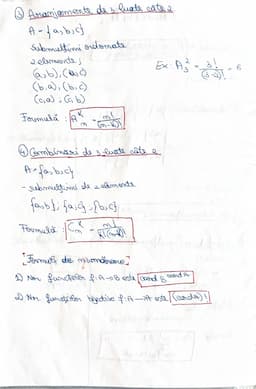 ③ Aranjamente de 3 luate câte 2
A = {a,b,c}
Submulțimi ordonate
2 elemente;
(a,b), (a,c)
(b,a), (b,c)
(c,a), (c,b)
Ex: A₃² = 3!/(3-2)! = 6
Formulă: Aₙᵏ = n!/(n-k)!
④ Combinări de 3 luate câte 2
A = {a,b,c}
- submulțimi de 2 elemente
{a,b}, {a,c}, {b,c}
Formulă: Cₙᵏ = n!/k!(n-k)!
[Formule de numărare]
1) Nr. funcțiilor f: A→B este card B^card A
2) Nr. funcțiilor bijective f: A→A este (card A)!